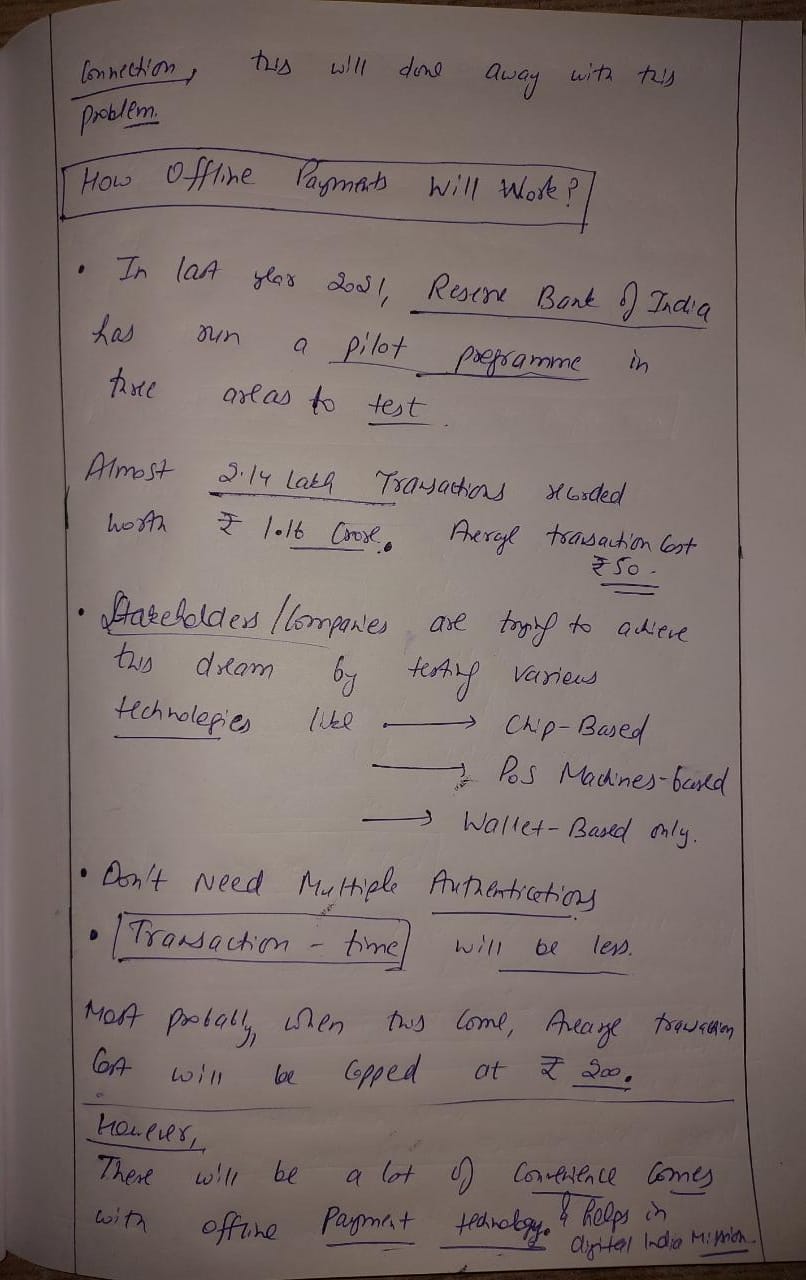 Connection, this will done away with this
problem.
How Offline Payments Will Work?
• In last year 2021, Reserve Bank of India
has run a pilot programme in
three areas to test.
Almost 2.14 lakh Transactions recorded
worth ₹ 1.16 Crore. Average transaction Cost
₹50.
• Stakeholders / Companies are trying to achieve
this dream by testing various
technologies like → Chip-Based
→ PoS Machines-based
→ Wallet-Based only.
• Don't Need Multiple Authentications
• Transaction - time will be less.
Most probably, when this come, Average transaction
Cost will be Capped at ₹ 200.
However,
There will be a lot of Convenience Comes
with offline Payment technology. & helps in
digital India Mission.